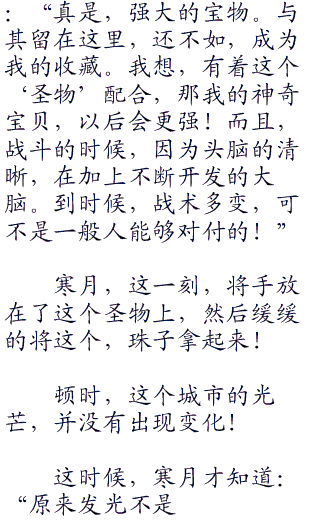 ：“真是，强大的宝物。与
其留在这里，还不如，成为
我的收藏。我想，有着这个
‘圣物’配合，那我的神奇
宝贝，以后会更强！而且，
战斗的时候，因为头脑的清
晰，在加上不断开发的大
脑。到时候，战术多变，可
不是一般人能够对付的！”
寒月，这一刻，将手放
在了这个圣物上，然后缓缓
的将这个，珠子拿起来！
顿时，这个城市的光
芒，并没有出现变化！
这时候，寒月才知道：
“原来发光不是